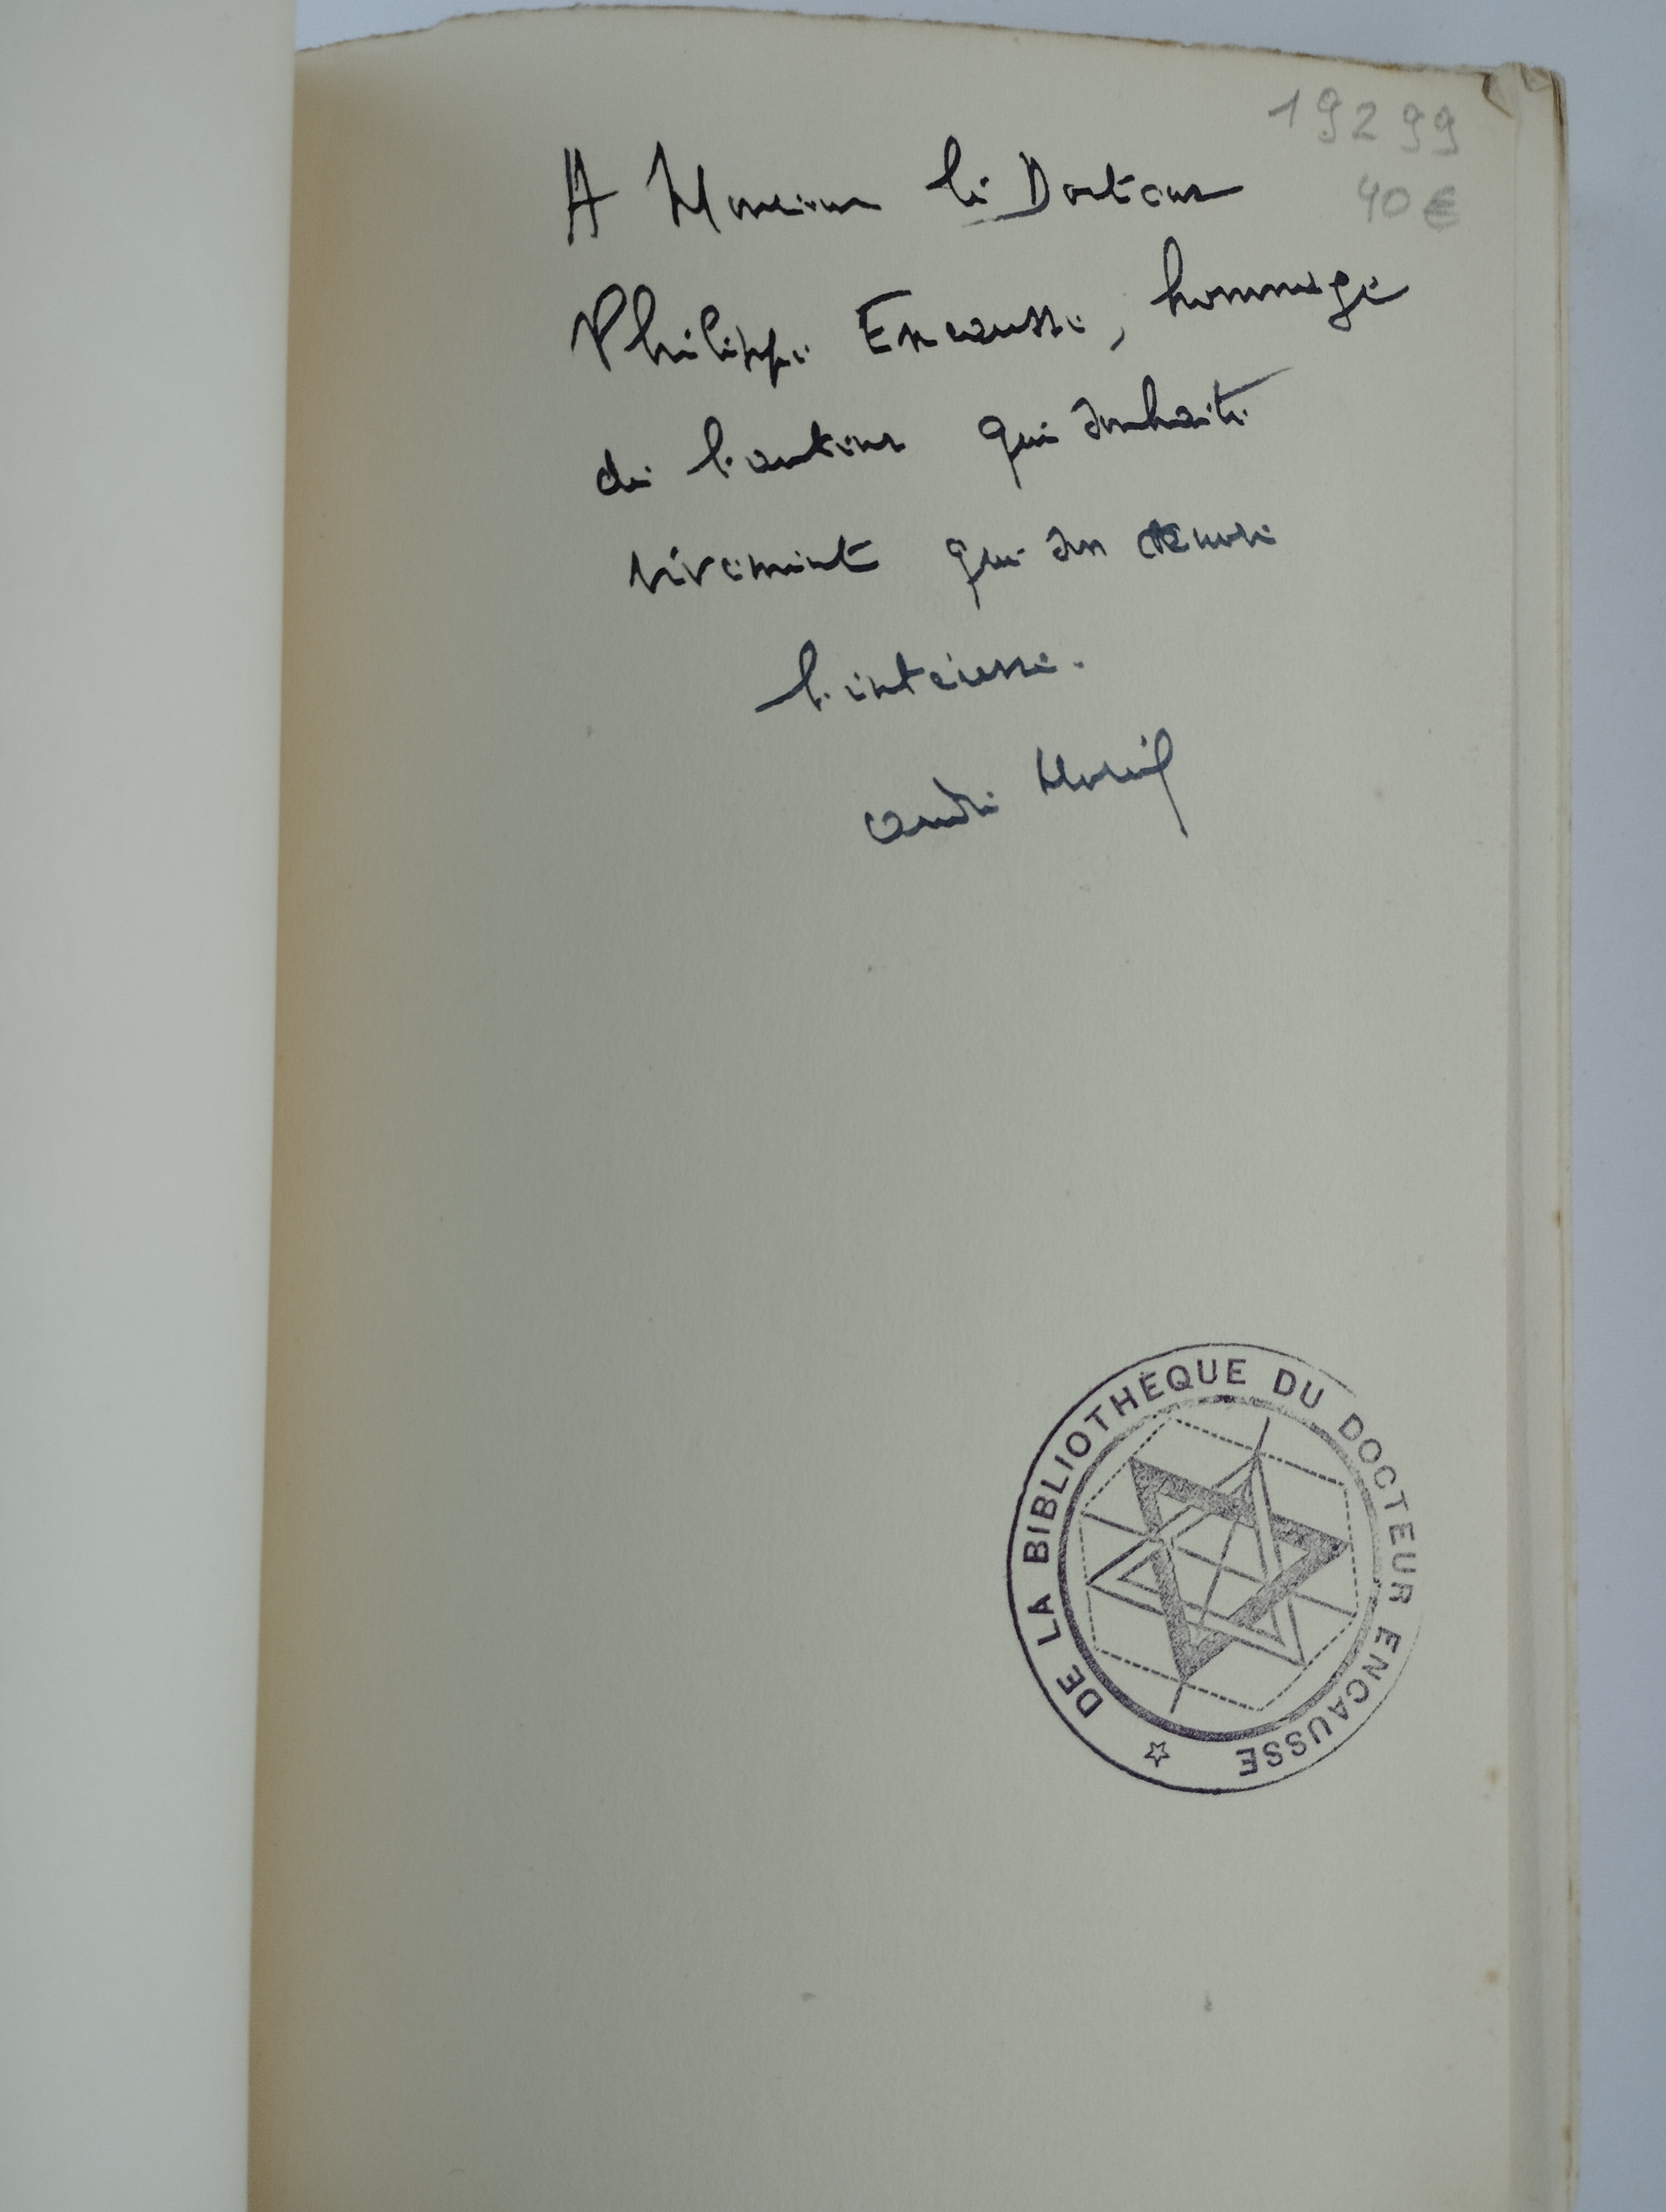 19299
40€
A Monsieur le Docteur
Philippe Encausse, hommage
de l'auteur qui souhaite
vivement que son œuvre
l'intéresse.
André
DE LA BIBLIOTHÈQUE DU DOCTEUR ENCAUSSE